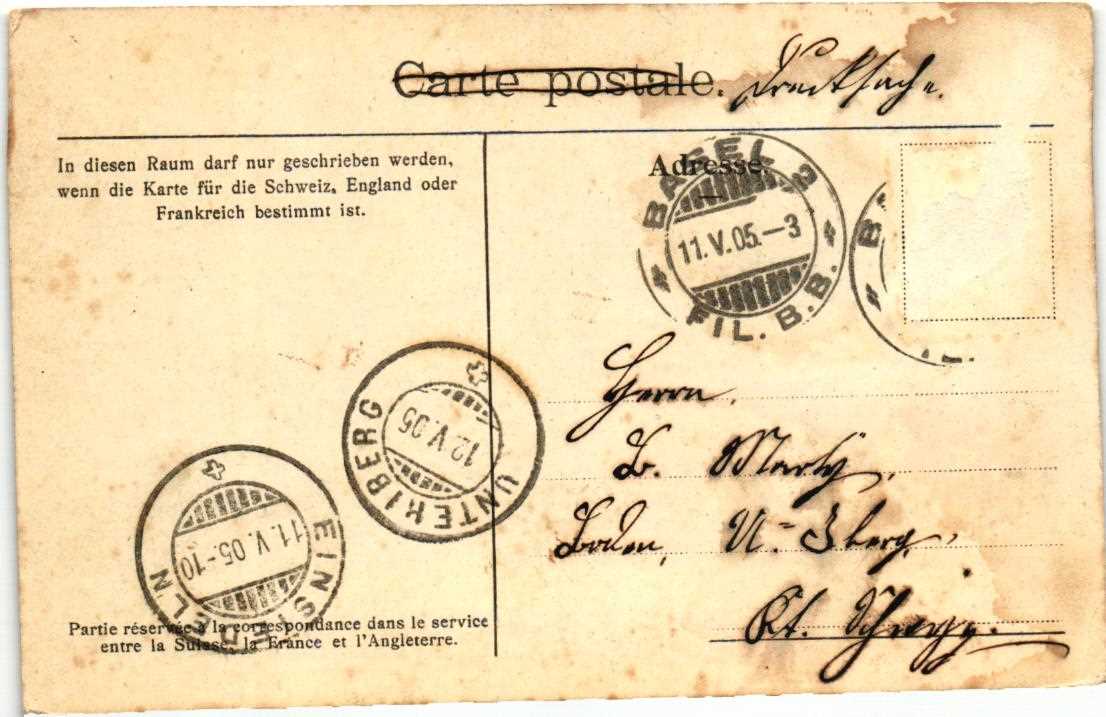 Carte postale. Drucksache.
In diesen Raum darf nur geschrieben werden,
wenn die Karte für die Schweiz, England oder
Frankreich bestimmt ist.
Adresse
BASEL 2
11.V.05.-3
FIL. B.B.
Herrn
B. Marty,
Boden, U-Iberg,
Kt. Schwyz.
UNTERIBERG
12.V.05
EINSIEDELN
11.V.05.-10
Partie réservée à la correspondance dans le service
entre la Suisse, la France et l'Angleterre.